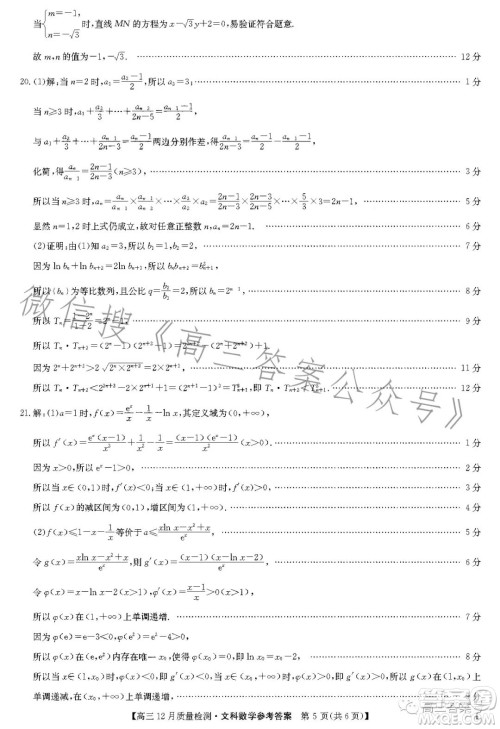 当{m=-1, n=-√3时,直线 MN 的方程为 x-√3y+2=0,易验证符合题意.
故 m,n 的值为-1,-√3. 12分
20.(1)解:当 n=2 时,a₁=(a₂-1)/2,所以 a₂=3; 1分
当 n≥3 时,a₁+a₂/3+…+aₙ₋₂/(2n-5)=(aₙ₋₁-1)/2,
与 a₁+a₂/3+…+aₙ₋₁/(2n-3)=(aₙ-1)/2两边分别作差,得aₙ₋₁/(2n-3)=(aₙ-aₙ₋₁)/2,
化简,得aₙ/aₙ₋₁=(2n-1)/(2n-3)(n≥3), 4分
所以当 n≥3 时,aₙ=aₙ/aₙ₋₁×aₙ₋₁/aₙ₋₂×…×a₃/a₂×a₂=(2n-1)/(2n-3)×(2n-3)/(2n-5)×…×5/3×3=2n-1, 5分
显然 n=1,2 时上式仍成立,故对任意正整数 n,aₙ=2n-1. 6分
(2)证明:由(1)知 a₂=3,所以 b₁=1,b₂=2, 7分
因为 ln bₙ+ln bₙ₊₂=2ln bₙ₊₁,所以 bₙbₙ₊₂=b²ₙ₊₁,
所以{bₙ}为等比数列,且公比 q=b₂/b₁=2,所以 bₙ=2ⁿ⁻¹, 8分
所以 Tₙ=(1-2ⁿ)/(1-2)=2ⁿ-1, 9分
所以 Tₙ·Tₙ₊₂=(2ⁿ-1)(2ⁿ⁺²-1)=2²ⁿ⁺²-(2ⁿ+2ⁿ⁺²)+1,
因为 2ⁿ+2ⁿ⁺²>2√(2ⁿ×2ⁿ⁺²)=2ⁿ⁺², 11分
所以 Tₙ·Tₙ₊₂<2²ⁿ⁺²-2ⁿ⁺²+1=(2ⁿ⁺¹-1)²=T²ₙ₊₁,即 Tₙ·Tₙ₊₂<T²ₙ₊₁. 12分
21.解:(1)a=1 时,f(x)=eˣ/x-1/x-ln x,其定义域为(0,+∞),
所以 f′(x)=eˣ(x-1)/x²+1/x²-1/x=(eˣ-1)(x-1)/x²(x>0). 1分
因为 x>0,所以 eˣ-1>0, 2分
所以当 x∈(0,1)时,f′(x)<0;当 x∈(1,+∞)时,f′(x)>0, 3分
所以 f(x)的减区间为(0,1),增区间为(1,+∞). 4分
(2)f(x)≤1-x-1/x等价于 a≤(xln x-x²+x)/eˣ, 5分
令 g(x)=(xln x-x²+x)/eˣ,则 g′(x)=(x-1)(x-ln x-2)/eˣ, 6分
令 φ(x)=x-ln x-2(x>1),所以 φ′(x)=(x-1)/x>0(x>1),
所以 φ(x)在(1,+∞)上单调递增. 7分
因为 φ(e)=e-3<0,φ(e²)=e²-4>0,
所以 φ(x)在(e,e²)内存在唯一 x₀,使得 φ(x₀)=0,即 g′(x₀)=0, 8分
所以当 x∈(1,x₀)时,φ(x)<0,即 g′(x)<0,所以 g(x)在(1,x₀)上单调递减;
当 x∈(x₀,+∞)时,φ(x)>0,即 g′(x)>0,所以 g(x)在(x₀,+∞)上单调递增.
【高三 12 月质量检测·文科数学参考答案 第 5 页(共 6 页)】
微信搜《高三答案公众号》